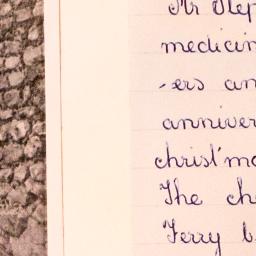 Mr Step
medicin
-ers an
anniver
christ'ma
The ch
Ferry b